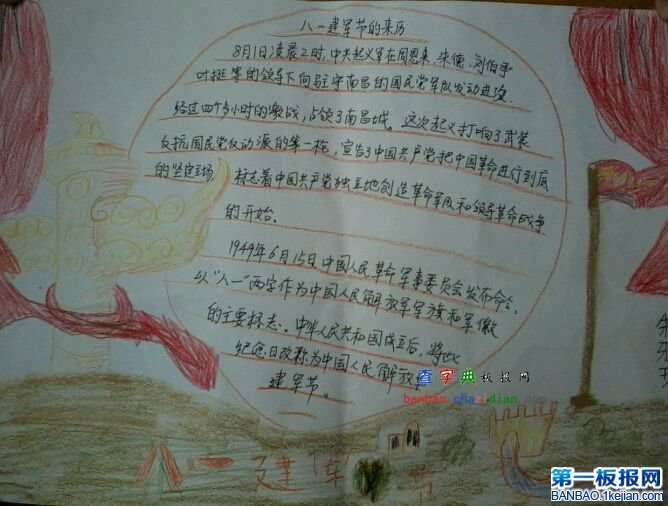 八一建军节的来历
8月1日凌晨2时,中共起义军在周恩来、朱德、刘伯承
叶挺等的领导下向驻守南昌的国民党军队发动进攻.
经过四个多小时的激战,占领了南昌城。这次起义打响了武装
反抗国民党反动派的第一枪,宣告了中国共产党把中国革命进行到底
的坚定立场
标志着中国共产党独立地创造革命军队和领导革命战争
的开始.
1949年6月15日,中国人民革命军事委员会发布命令,
以"八一"两字作为中国人民解放军军旗和军徽
的主要标志.中华人民共和国成立后,将此
纪念日改称为中国人民解放军
建军节。
查字典板报网
banbao.chazidian.com
八一建军节
第一板报网
BANBAO.1kejian.com